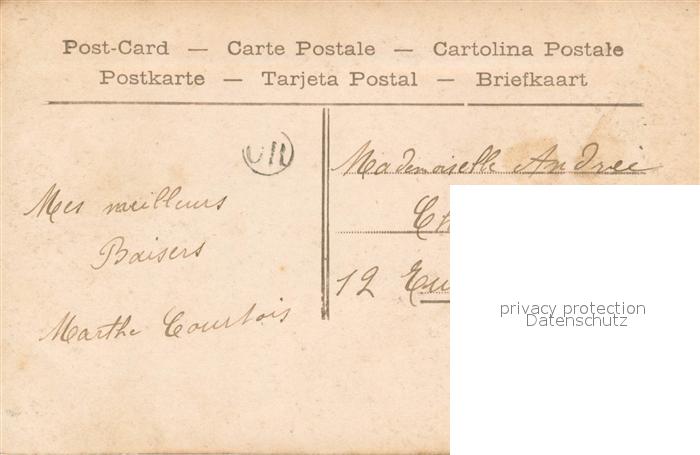 Post-Card — Carte Postale — Cartolina Postale
Postkarte — Tarjeta Postal — Briefkaart
Mes meilleurs
Baisers
Marthe Courtois
Mademoiselle Andrée
12
privacy protection
Datenschutz